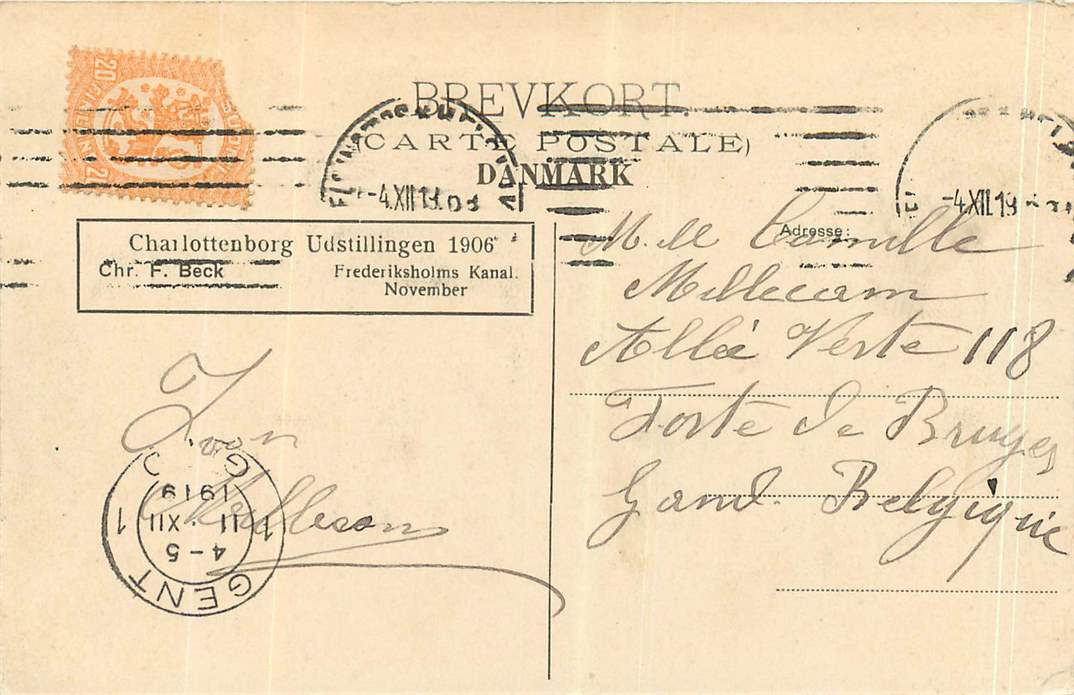 BREVKORT.
(CARTE POSTALE)
DANMARK
20
-4.XII.19
-4.XII.19
Charlottenborg Udstillingen 1906
Chr. F. Beck
Frederiksholms Kanal.
November
Adresse:
Camille
Millecam
Allée Verte 118
Porte de Bruges
Gand. Belgique
GENT
4-5
11 XII
1919
1 1